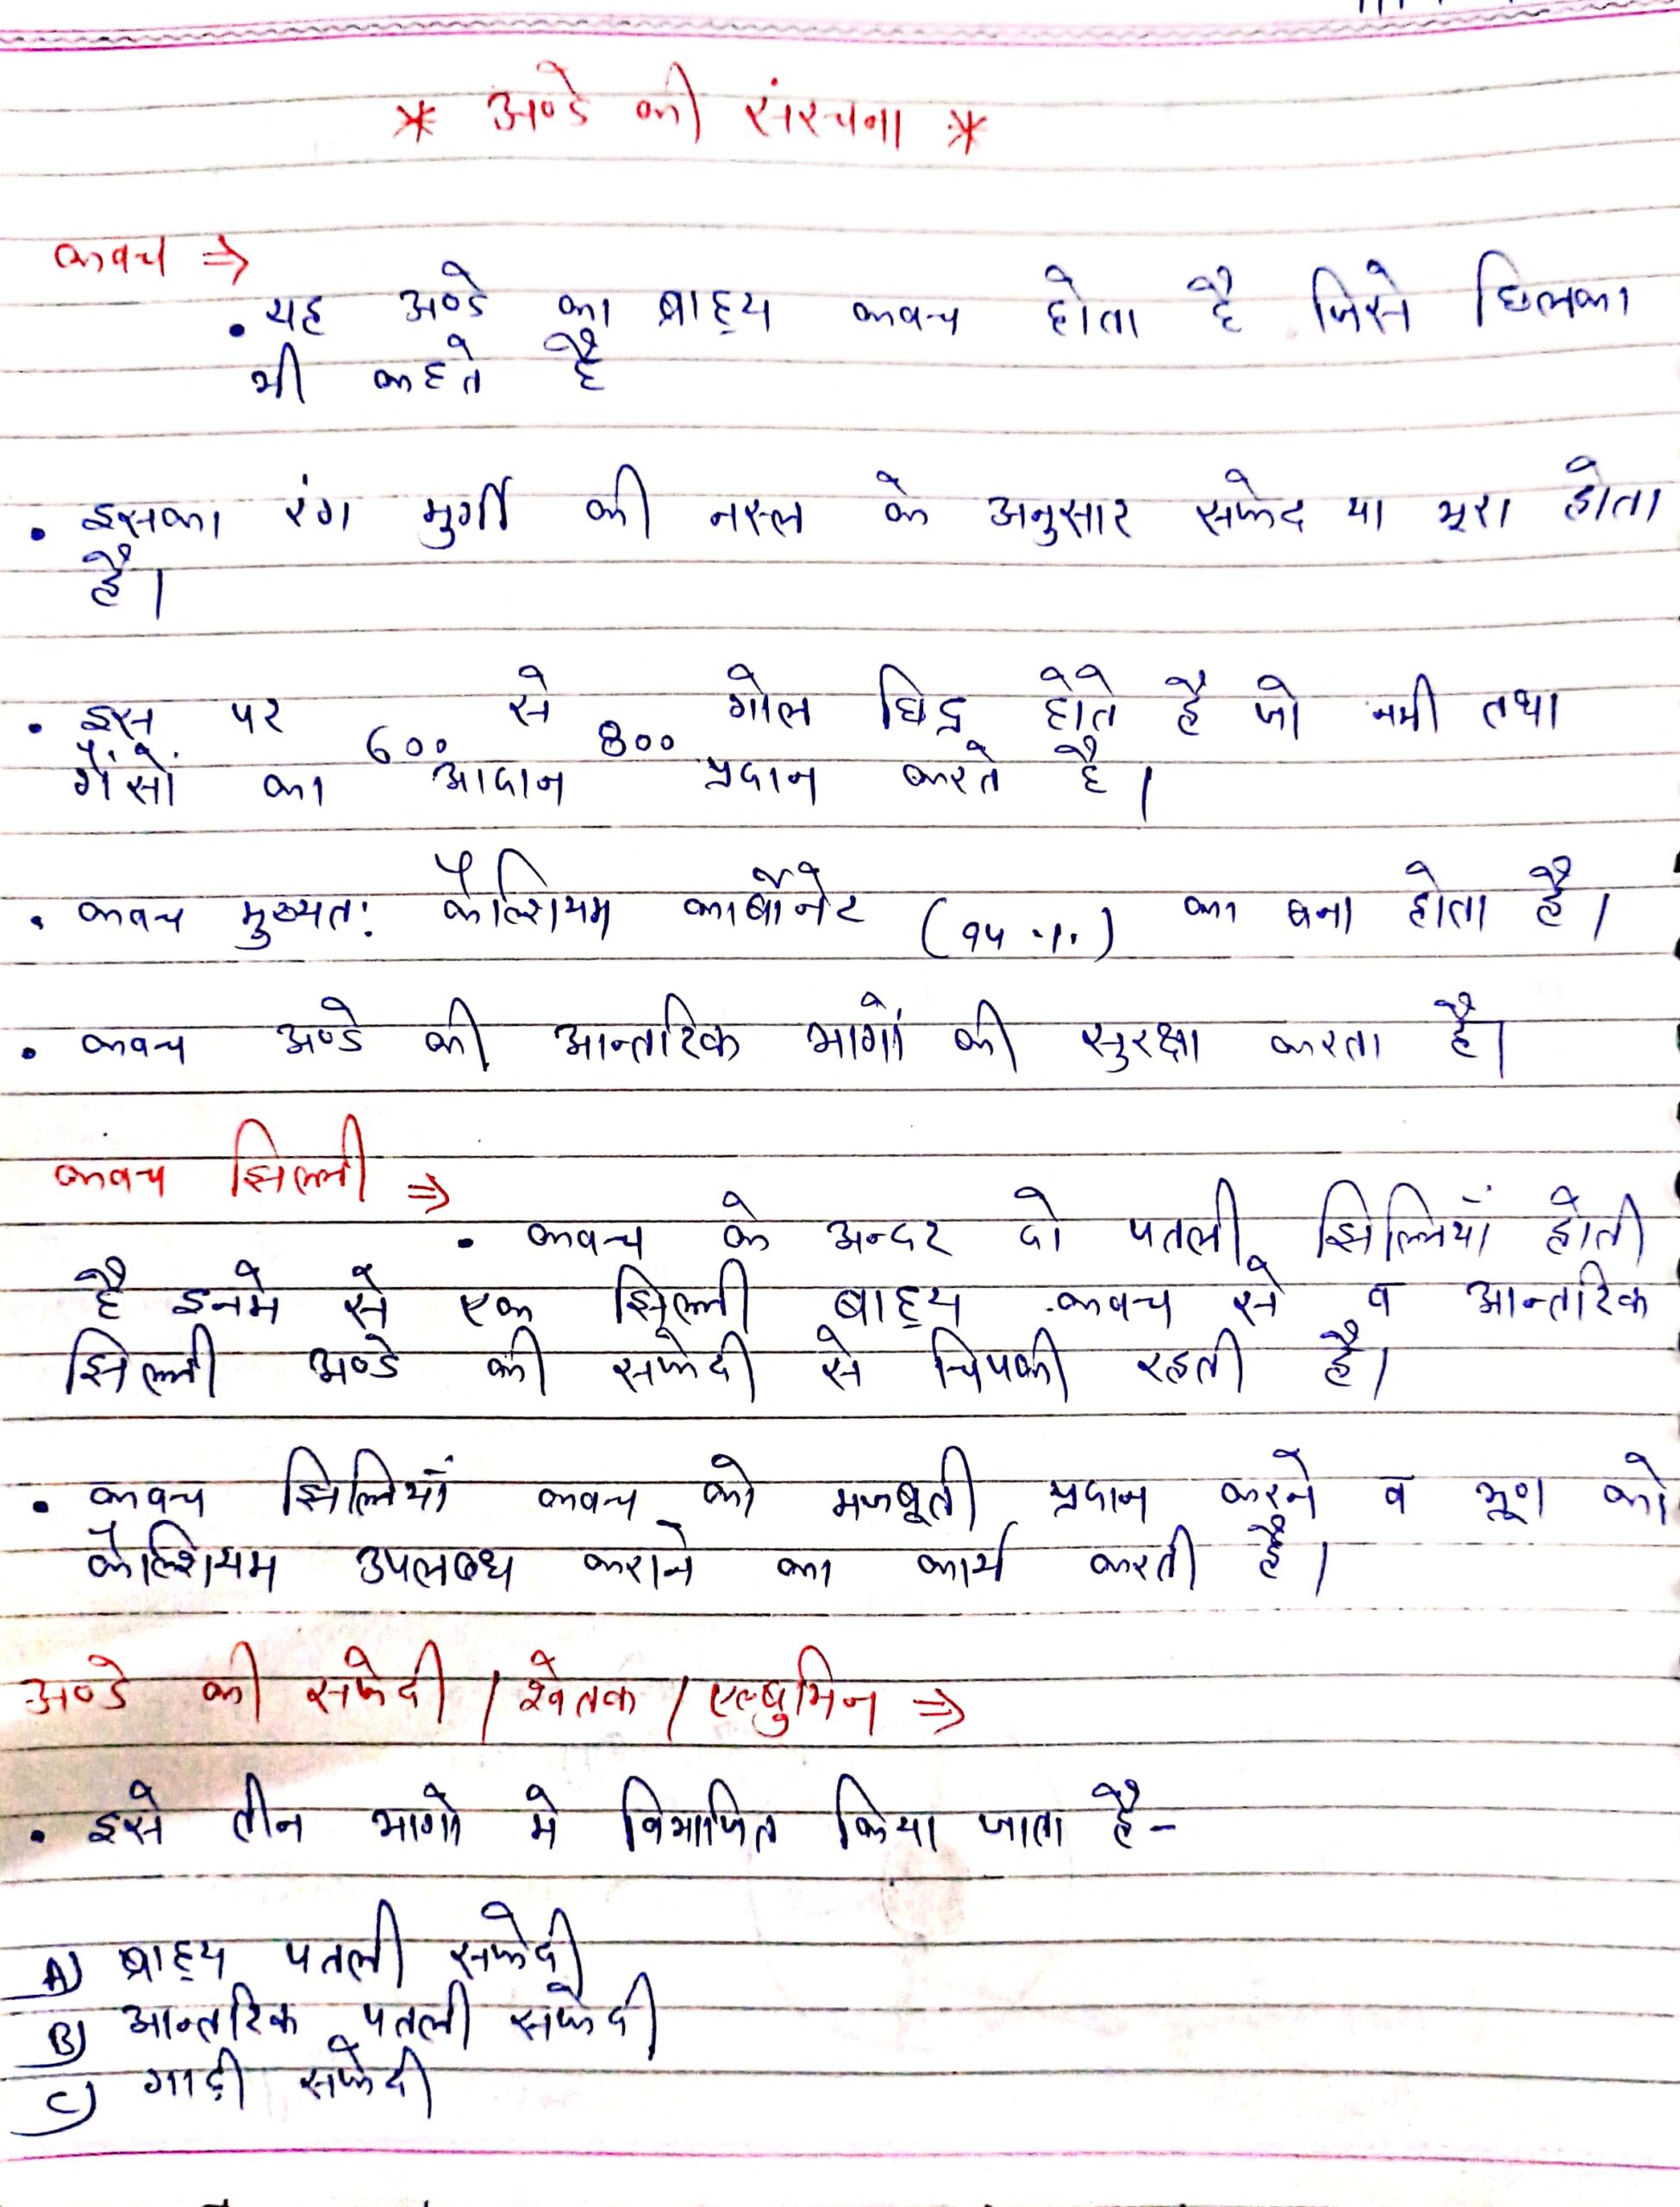 * अण्डे की संरचना *
कवच ⇒
• यह अण्डे का बाह्य कवच होता है जिसे छिलका
भी कहते है
• इसका रंग मुर्गी की नस्ल के अनुसार सफेद या भूरा होता
है।
• इस पर 600 से 800 गोल छिद्र होते है जो नमी तथा
गैसों का आदान प्रदान करते है।
• कवच मुख्यत: कैल्शियम कार्बोनेट (94 %) का बना होता है।
• कवच अण्डे की आन्तरिक भागों की सुरक्षा करता है।
कवच झिल्ली ⇒
• कवच के अन्दर दो पतली झिल्लियाँ होती
है इनमे से एक झिल्ली बाह्य कवच से व आन्तरिक
झिल्ली अण्डे की सफेदी से चिपकी रहती है।
• कवच झिल्लियाँ कवच को मजबूती प्रदान करने व भ्रूण को
कैल्शियम उपलब्ध कराने का कार्य करती है।
अण्डे की सफेदी / श्वेतक / एल्बुमिन ⇒
• इसे तीन भागो मे विभाजित किया जाता है-
A) बाह्य पतली सफेदी
B) आन्तरिक पतली सफेदी
C) गाढ़ी सफेदी